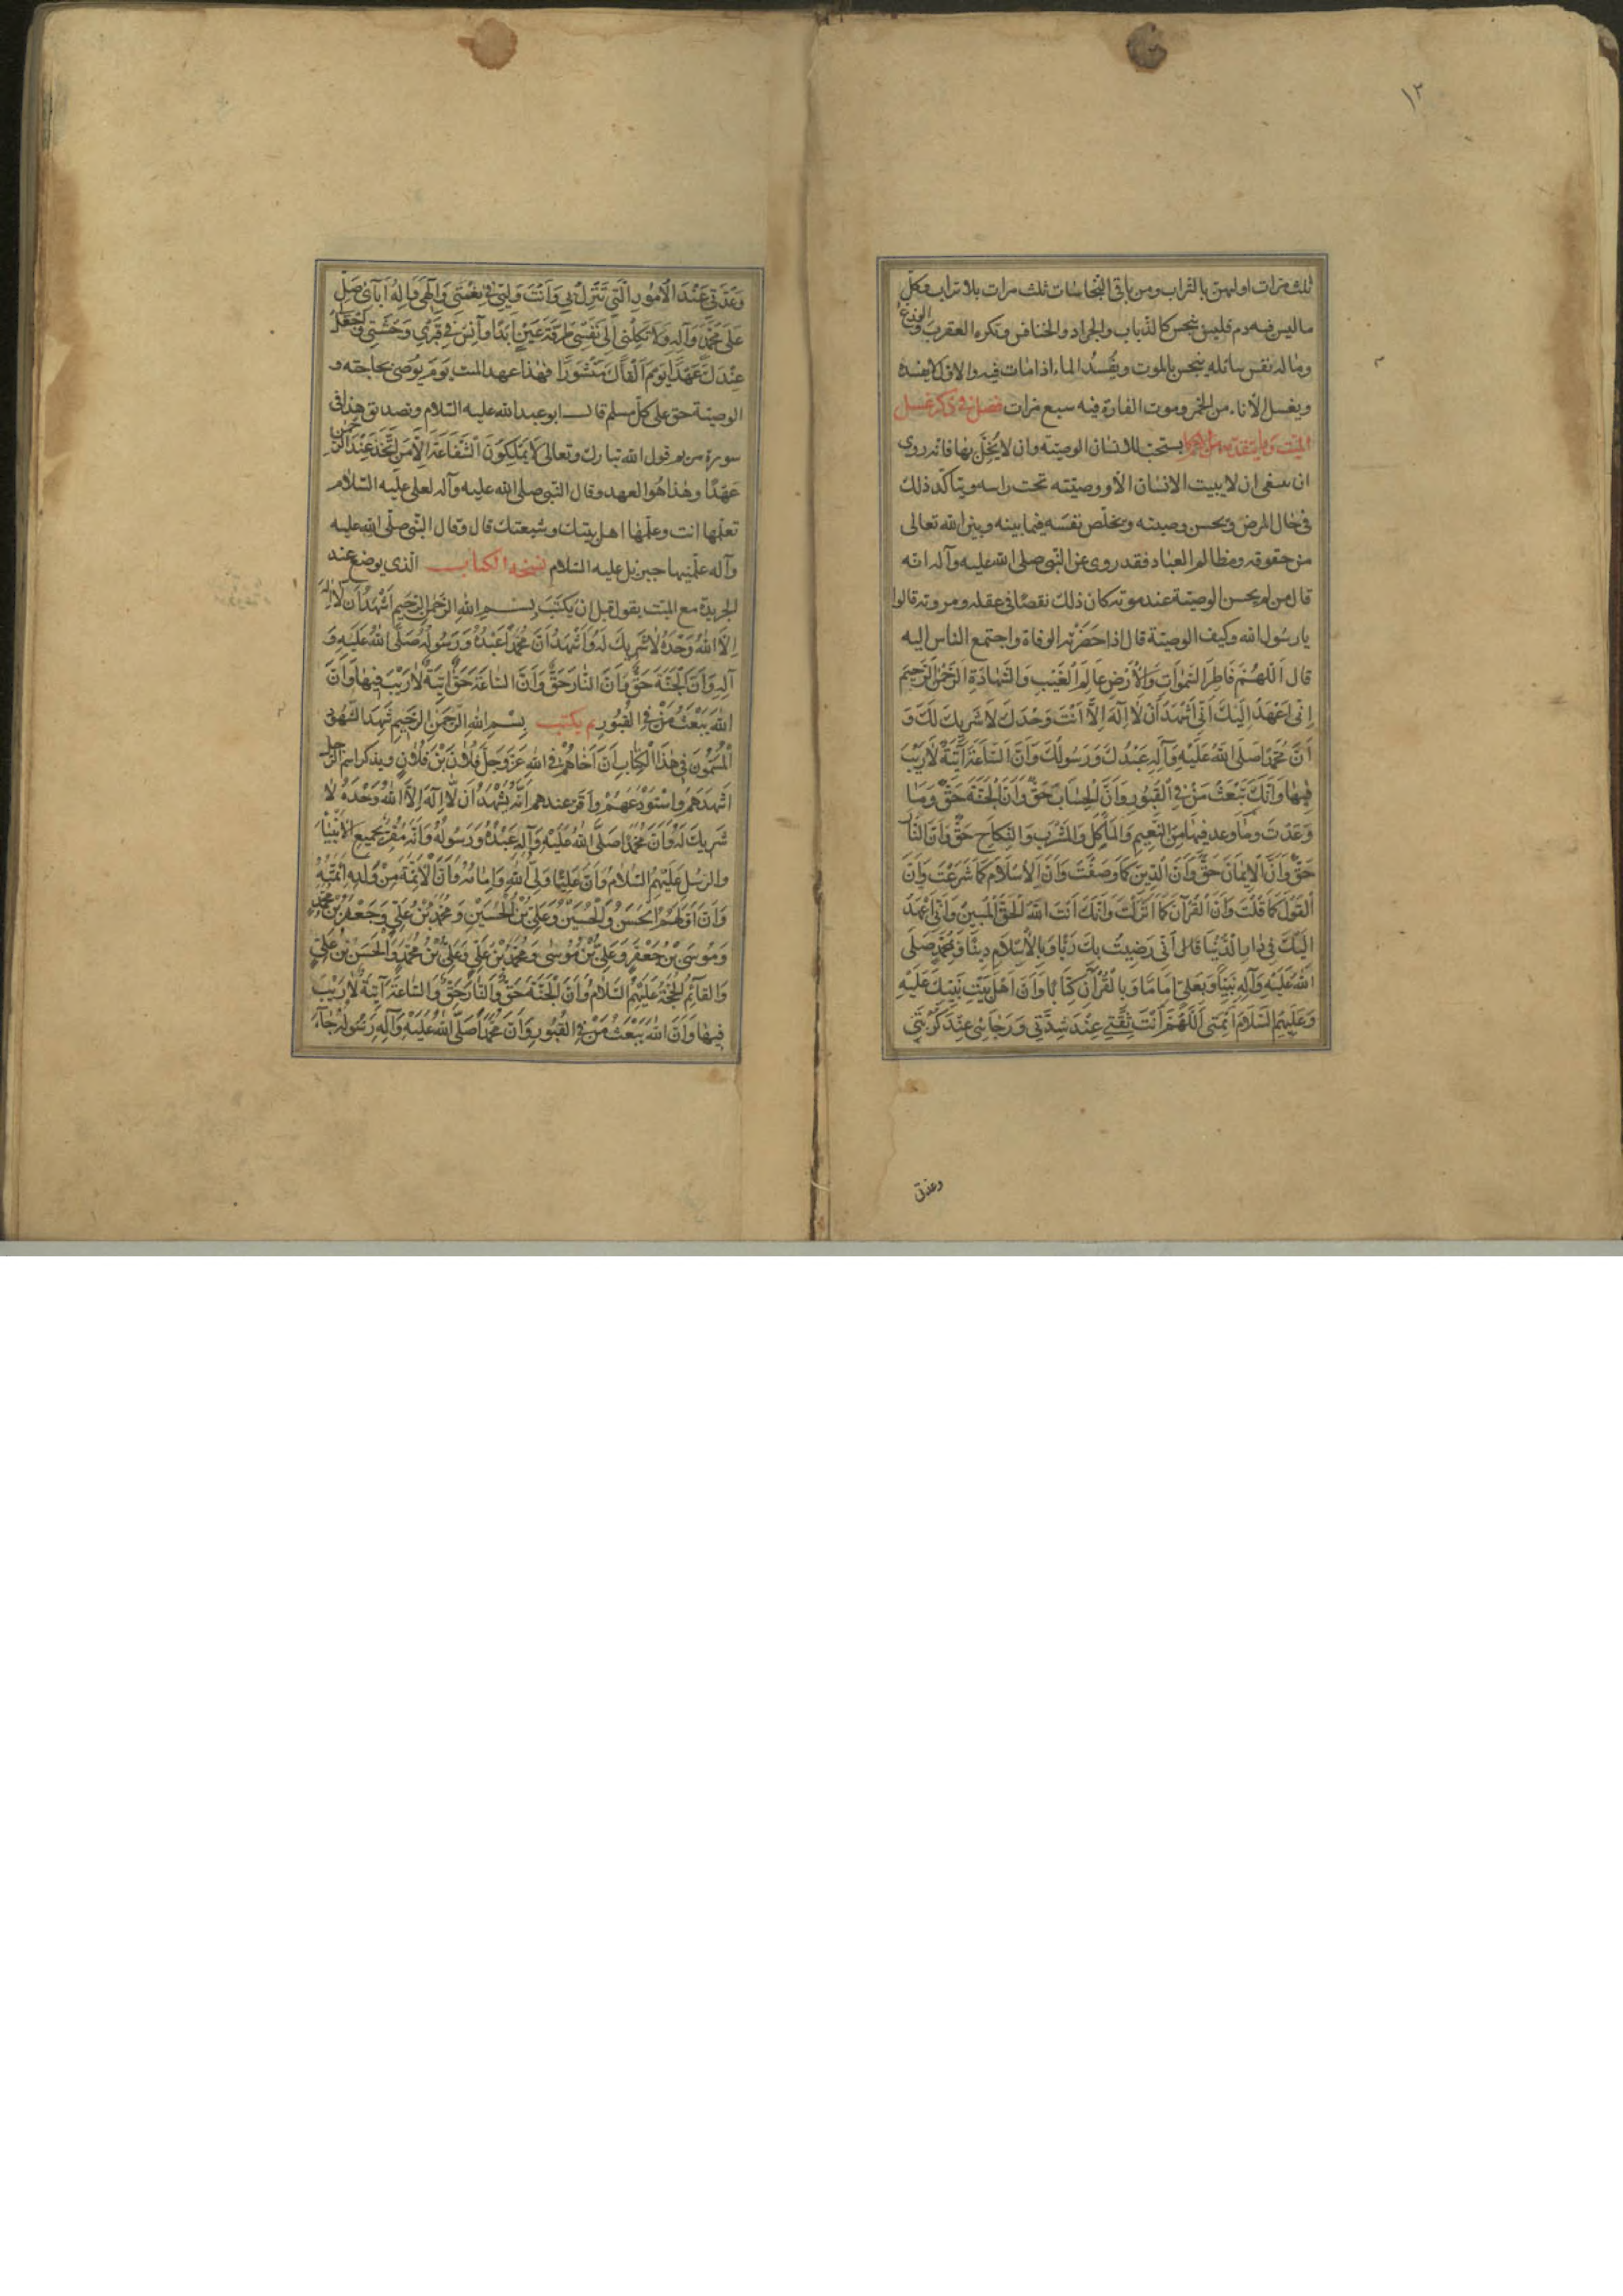 ١٣
ثلث مرات اولهن بالتراب ومن باقى النجاسات ثلث مرات بلا تراب وكل
ما ليس فيه دم فليس بنجس كالذباب والجراد والخنافس ويكره العقرب والوزغ
وما له نفس سائلة ينجس بالموت ويفسد الماء اذا مات فيه والاول لا يفسده
ويغسل الاناء من الخمر وموت الفارة فيه سبع مرات فصل فى ذكر غسل
الميت وما يتقدمه من الاحكام يستحب للانسان الوصية وان لا يخل بها فانه روى
انه ينبغى ان لا يبيت الانسان الا ووصيته تحت راسه ويتاكد ذلك
فى حال المرض ويحسن وصيته ويخلص نفسه فيما بينه وبين الله تعالى
من حقوقه ومظالم العباد فقد روى عن النبى صلى الله عليه وآله انه
قال من لم يحسن الوصية عند موته كان ذلك نقصًا فى عقله ومروته قالوا
يا رسول الله وكيف الوصية قال اذا حَضَرَتْه الوفاة واجتمع الناس اليه
قال اَللّهُمَّ فَاطِرَ السَّمٰوَاتِ وَالْاَرْضِ عَالِمَ الْغَيْبِ وَالشَّهَادَةِ الرَّحْمٰنَ الرَّحِيمَ
اِنِّى اَعْهَدُ اِلَيْكَ اَنِّى اَشْهَدُ اَنْ لَا اِلٰهَ اِلَّا اَنْتَ وَحْدَكَ لَا شَرِيكَ لَكَ وَ
اَنَّ مُحَمَّدًا صَلَّى اللهُ عَلَيْهِ وَآلِهِ عَبْدُكَ وَرَسُولُكَ وَاَنَّ السَّاعَةَ آتِيَةٌ لَا رَيْبَ
فِيهَا وَاَنَّكَ تَبْعَثُ مَنْ فِى الْقُبُورِ وَاَنَّ الْحِسَابَ حَقٌّ وَاَنَّ الْجَنَّةَ حَقٌّ وَمَا
وَعَدْتَ وما وعد فِيهَا مِنَ النَّعِيمِ وَالْمَأْكَلِ وَالْمَشْرَبِ وَالنِّكَاحِ حَقٌّ وَاَنَّ النَّارَ
حَقٌّ وَاَنَّ الْاِيمَانَ حَقٌّ وَاَنَّ الدِّينَ كَمَا وَصَفْتَ وَاَنَّ الْاِسْلَامَ كَمَا شَرَعْتَ وَاَنَّ
الْقَوْلَ كَمَا قُلْتَ وَاَنَّ الْقُرْآنَ كَمَا اَنْزَلْتَ وَاَنَّكَ اَنْتَ اللهُ الْحَقُّ الْمُبِينُ وَاَنِّى اَعْهَدُ
اِلَيْكَ فِى دَارِ الدُّنْيَا اَنِّى رَضِيتُ بِكَ رَبًّا وَبِالْاِسْلَامِ دِينًا وَبِمُحَمَّدٍ صَلَّى
اللهُ عَلَيْهِ وَآلِهِ نَبِيًّا وَبِعَلِىٍّ اِمَامًا وَبِالْقُرْآنِ كِتَابًا وَاَنَّ اَهْلَ بَيْتِ نَبِيِّكَ عَلَيْهِ
وَعَلَيْهِمُ السَّلَامُ اَئِمَّتِى اَللّهُمَّ اَنْتَ ثِقَتِى عِنْدَ شِدَّتِى وَرَجَائِى عِنْدَ كُرْبَتِى
وعدتى
وَعُدَّتِى عِنْدَ الْاُمُورِ الَّتِى تَنْزِلُ بِى وَاَنْتَ وَلِيِّى فِى نِعْمَتِى وَاِلٰهِى وَاِلٰهُ آبَائِى صَلِّ
عَلٰى مُحَمَّدٍ وَآلِهِ وَلَا تَكِلْنِى اِلٰى نَفْسِى طَرْفَةَ عَيْنٍ اَبَدًا وَآنِسْ فِى قَبْرِى وَحْشَتِى وَاجْعَلْ
عِنْدَكَ عَهْدًا يَوْمَ اَلْقَاكَ مَنْشُورًا فهذا عهد الميت يَوْمَ يُوصَى بحاجته و
الوصية حق على كل مسلم قال ابو عبد الله عليه السلام وتصديق هذا فى
سورة مريم قول الله تبارك وتعالى لَا يَمْلِكُونَ الشَّفَاعَةَ اِلَّا مَنِ اتَّخَذَ عِنْدَ الرَّحْمٰنِ
عَهْدًا وهٰذا هُوَ العهد وقال النبى صلى الله عليه وآله لعلى عليه السلام
تعلمها انت وعلمها اهل بيتك وشيعتك قال وقال النبى صلى الله عليه
وآله علمنيها جبرئيل عليه السلام نسخة الكتاب الذى يوضع عند
الجريدة مع الميت يقول قبل ان يكتب بِسْمِ اللهِ الرَّحْمٰنِ الرَّحِيمِ اَشْهَدُ اَنْ لَا اِلٰهَ
اِلَّا اللهُ وَحْدَهُ لَا شَرِيكَ لَهُ وَاَشْهَدُ اَنَّ مُحَمَّدًا عَبْدُهُ وَرَسُولُهُ صَلَّى اللهُ عَلَيْهِ وَ
آلِهِ وَاَنَّ الْجَنَّةَ حَقٌّ وَاَنَّ النَّارَ حَقٌّ وَاَنَّ السَّاعَةَ حَقٌّ آتِيَةٌ لَا رَيْبَ فِيهَا وَاَنَّ
اللهَ يَبْعَثُ مَنْ فِى الْقُبُورِ ثم يكتب بِسْمِ اللهِ الرَّحْمٰنِ الرَّحِيمِ شَهِدَ الشُّهُودُ
الْمُسَمَّوْنَ فِى هٰذَا الْكِتَابِ اَنَّ اَخَاهُمْ فِى اللهِ عَزَّ وَجَلَّ فُلَانَ بْنَ فُلَانٍ ويذكر اسم الرجل
اَشْهَدَهُمْ وَاسْتَوْدَعَهُمْ وَاَقَرَّ عندهم اَنَّهُ يَشْهَدُ اَنْ لَا اِلٰهَ اِلَّا اللهُ وَحْدَهُ لَا
شَرِيكَ لَهُ وَاَنَّ مُحَمَّدًا صَلَّى اللهُ عَلَيْهِ وَآلِهِ عَبْدُهُ وَرَسُولُهُ وَاَنَّهُ مُقِرٌّ بِجَمِيعِ الْاَنْبِيَاءِ
وَالرُّسُلِ عَلَيْهِمُ السَّلَامُ وَاَنَّ عَلِيًّا وَلِىُّ اللهِ وَاِمَامُهُ وَاَنَّ الْاَئِمَّةَ مِنْ وُلْدِهِ اَئِمَّتُهُ
وَاَنَّ اَوَّلَهُمُ الْحَسَنُ وَالْحُسَيْنُ وَعَلِىُّ بْنُ الْحُسَيْنِ وَمُحَمَّدُ بْنُ عَلِىٍّ وَجَعْفَرُ بْنُ مُحَمَّدٍ
وَمُوسَى بْنُ جَعْفَرٍ وَعَلِىُّ بْنُ مُوسٰى وَمُحَمَّدُ بْنُ عَلِىٍّ وَعَلِىُّ بْنُ مُحَمَّدٍ وَالْحَسَنُ بْنُ عَلِىٍّ
وَالْقَائِمُ الْحُجَّةُ عَلَيْهِمُ السَّلَامُ وَاَنَّ الْجَنَّةَ حَقٌّ وَالنَّارَ حَقٌّ وَالسَّاعَةَ آتِيَةٌ لَا رَيْبَ
فِيهَا وَاَنَّ اللهَ يَبْعَثُ مَنْ فِى الْقُبُورِ وَاَنَّ مُحَمَّدًا صَلَّى اللهُ عَلَيْهِ وَآلِهِ رَسُولُهُ جَاءَ